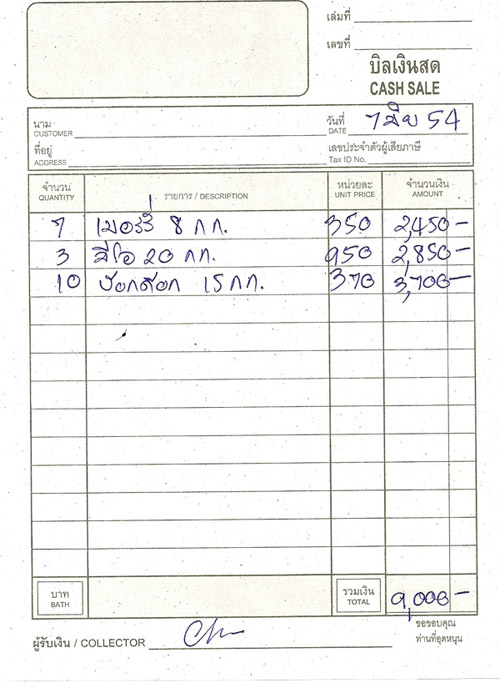 เล่มที่
เลขที่
บิลเงินสด
CASH SALE
นาม
CUSTOMER
วันที่ 7 มีย 54
DATE
ที่อยู่
ADDRESS
เลขประจำตัวผู้เสียภาษี
Tax ID No.
จำนวน รายการ / DESCRIPTION หน่วยละ จำนวนเงิน
QUANTITY UNIT PRICE AMOUNT
7 เมอร์รี่ 8 กก. 350 2,450-
3 ซีโอ 20 กก. 950 2,850-
10 ช๊อกด๊อก 15 กก. 370 3,700-
บาท รวมเงิน 9,000-
BATH TOTAL
ผู้รับเงิน / COLLECTOR
ขอขอบคุณ
ท่านที่อุดหนุน